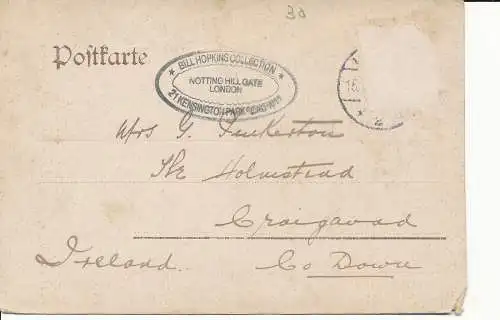 30
Postkarte
★ BILL HOPKINS COLLECTION ★
NOTTING HILL GATE
LONDON
21 KENSINGTON PARK
15.
Mrs G. Pinkerton
The Holmstead
Craigavad
Ireland. Co Down